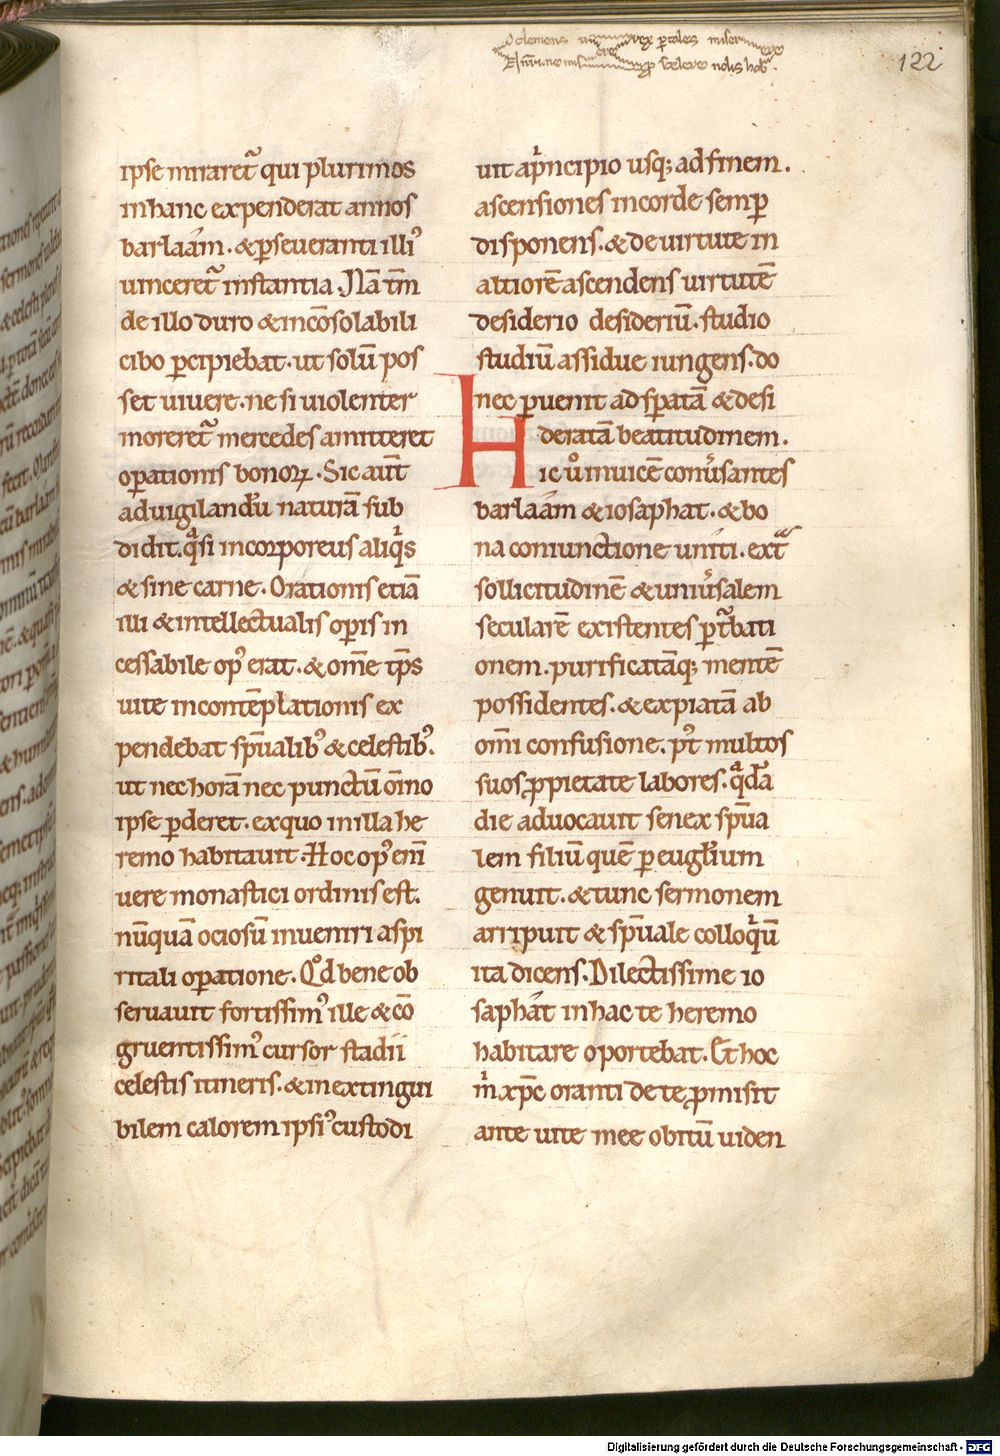 O clemens rex p̱tales miser
122
ipse miraret᷑ qui plurimos
in hanc expenderat annos
barlaám . & ꝑseueranti illiꝰ
uinceret᷑ instantia . Nā tm̄
de illo duro & incōsolabili
cibo ꝑcipiebat . ut solū pos
set uiuere . ne si uiolenter
moreret᷑ mercedes amitteret
oꝑationis bonoꝝ . Sic aūt
ad uigilandū naturā sub
didit . qͣsi incorporeus aliqͥs
& sine carne . Orationis etiā
illi & intellectualis oꝑis in
cessabile opꝰ erat . & om̄e tp̄s
uite in contēplationis ex
pendebat sp̄ualibꝰ & celestibꝰ .
ut nec horā nec punctū om̄o
ipse ꝑderet . ex quo in illa he
remo habitauit . Hoc opꝰ eni̅
uere monastici ordinis est .
nūquā ociosū inueniri a spi
ritali oꝑatione . Qd̄ bene ob
seruauit fortissimꝰ ille & cō
gruentissimꝰ cursor stadii
celestis itineris . & inextingui
bilem calorem ipsiꝰ custodi
uit a pͥncipio usq; ad finem .
ascensiones in corde semꝑ
disponens . & de uirtute in
altiorē ascendens uirtutē
desiderio desideriū . studio
studiū assidue iungens . do
nec ꝑuenit ad sꝑatā & desi
deratā beatitudinem .
Hic uͦ inuicē conuͥsantes
barlaám & iosaphat . & bo
na coniunctione uniti . extͣ
sollicitudinē & uniuͥsalem
secularē existentes ꝑtͥbati
onem . purificatāq; mentē
possidentes . & expiatā ab
om̄i confusione . pꝰt multos
suos ꝓ pietate labores . qͣdā
die aduocauit senex sp̄ua
lem filiū quē ꝑ eugłium
genuit . & tunc sermonem
arripuit & sp̄uale colloqͥū
ita dicens . Dilectissime io
saphát in hac te heremo
habitare oportebat . Et hoc
mͥ xp̄c oranti de te ꝓmisit
ante uite mee obitū uiden
Digitalisierung gefördert durch die Deutsche Forschungsgemeinschaft - DFG